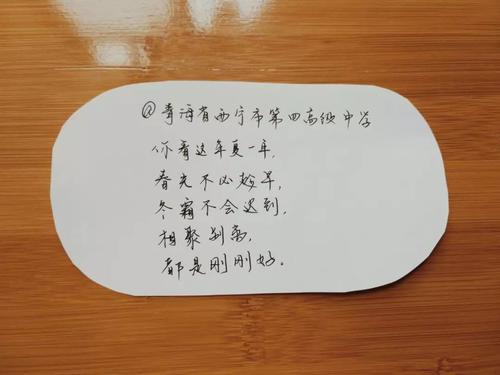 @青海省西宁市第四高级中学
你看这年复一年,
春光不必趁早,
冬霜不会迟到,
相聚别离,
都是刚刚好。